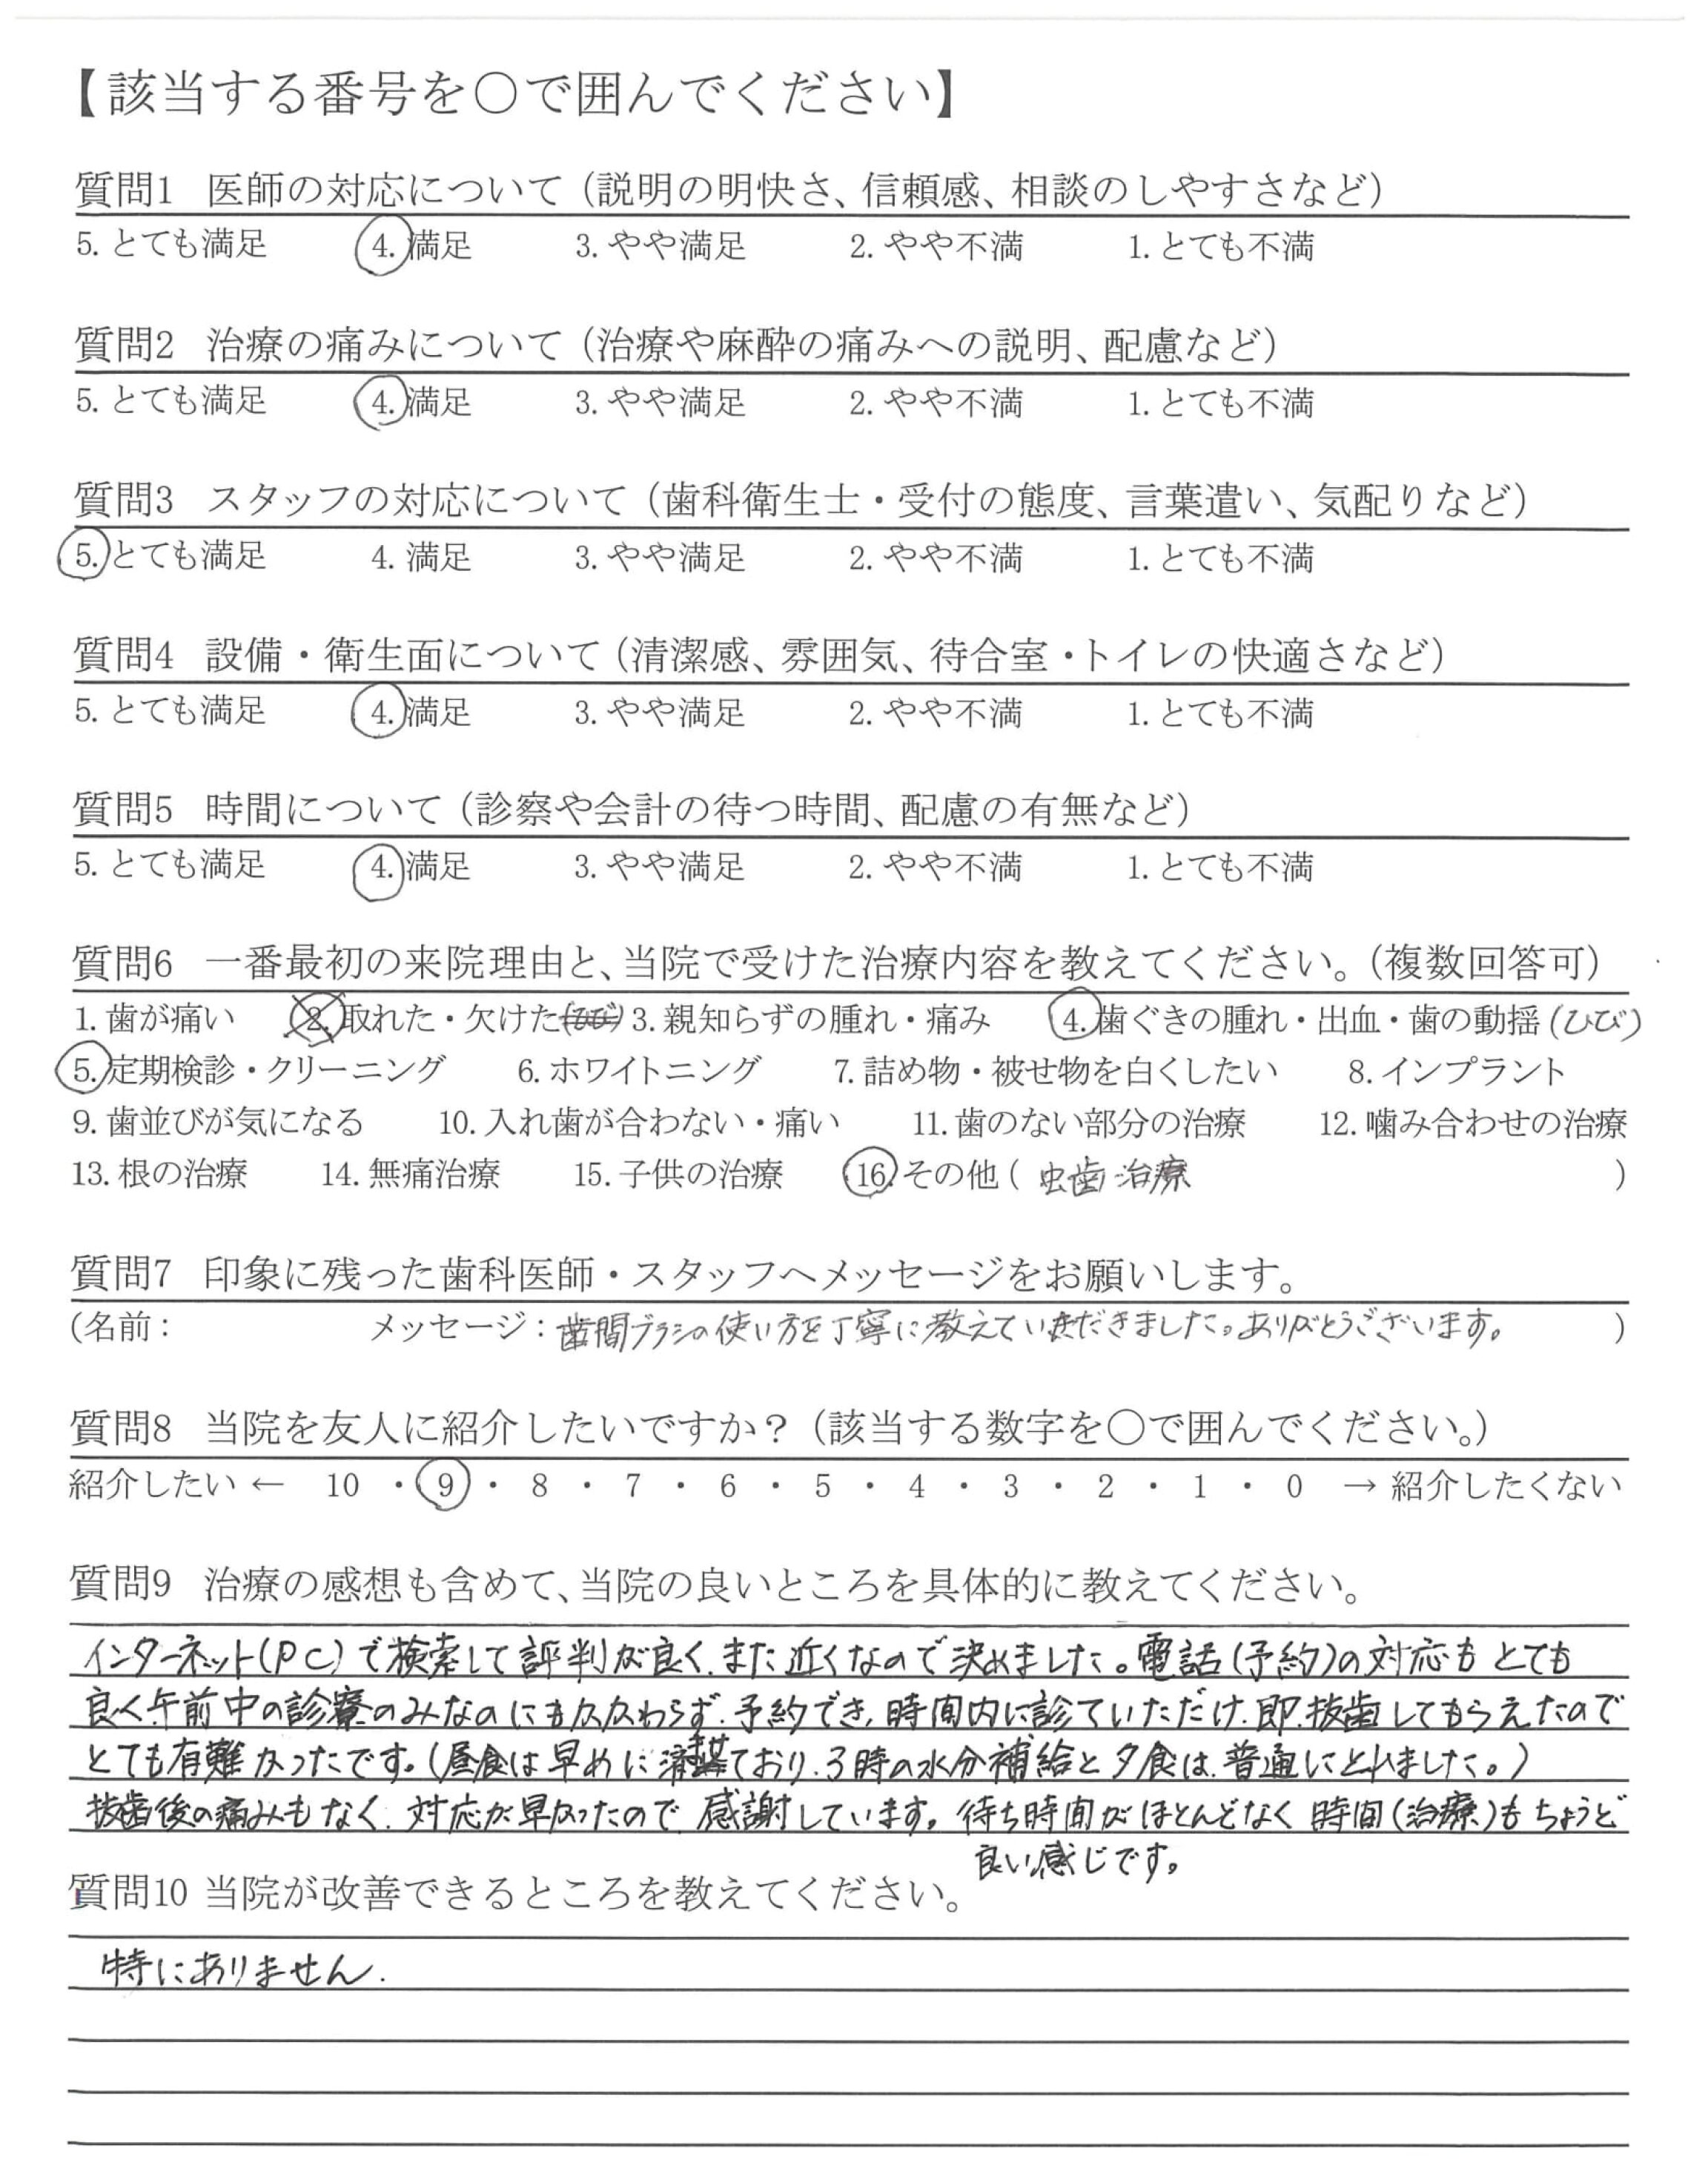 【該当する番号を○で囲んでください】
質問1 医師の対応について（説明の明快さ、信頼感、相談のしやすさなど）
5. とても満足 4. 満足 3. やや満足 2. やや不満 1. とても不満
質問2 治療の痛みについて（治療や麻酔の痛みへの説明、配慮など）
5. とても満足 4. 満足 3. やや満足 2. やや不満 1. とても不満
質問3 スタッフの対応について（歯科衛生士・受付の態度、言葉遣い、気配りなど）
5. とても満足 4. 満足 3. やや満足 2. やや不満 1. とても不満
質問4 設備・衛生面について（清潔感、雰囲気、待合室・トイレの快適さなど）
5. とても満足 4. 満足 3. やや満足 2. やや不満 1. とても不満
質問5 時間について（診察や会計の待つ時間、配慮の有無など）
5. とても満足 4. 満足 3. やや満足 2. やや不満 1. とても不満
質問6 一番最初の来院理由と、当院で受けた治療内容を教えてください。（複数回答可）
1. 歯が痛い 2. 取れた・欠けた(ひび) 3. 親知らずの腫れ・痛み 4. 歯ぐきの腫れ・出血・歯の動揺(ひび)
5. 定期検診・クリーニング 6. ホワイトニング 7. 詰め物・被せ物を白くしたい 8. インプラント
9. 歯並びが気になる 10. 入れ歯が合わない・痛い 11. 歯のない部分の治療 12. 噛み合わせの治療
13. 根の治療 14. 無痛治療 15. 子供の治療 16. その他( 虫歯治療 )
質問7 印象に残った歯科医師・スタッフへメッセージをお願いします。
(名前: メッセージ: 歯間ブラシの使い方を丁寧に教えていただきました。ありがとうございます。 )
質問8 当院を友人に紹介したいですか？（該当する数字を○で囲んでください。）
紹介したい ← 10 ・ 9 ・ 8 ・ 7 ・ 6 ・ 5 ・ 4 ・ 3 ・ 2 ・ 1 ・ 0 → 紹介したくない
質問9 治療の感想も含めて、当院の良いところを具体的に教えてください。
インターネット(PC)で検索して評判が良く、また近くなので決めました。電話(予約)の対応もとても
良く午前中の診察のみなのにもかかわらず、予約でき、時間内に診ていただけ、即、抜歯してもらえたので
とても有難かったです。(昼食は早めに済ませており、3時の水分補給と夕食は、普通にとれました。)
抜歯後の痛みもなく、対応が早かったので、感謝しています。待ち時間がほとんどなく 時間(治療)もちょうど
良い感じです。
質問10 当院が改善できるところを教えてください。
特にありません.